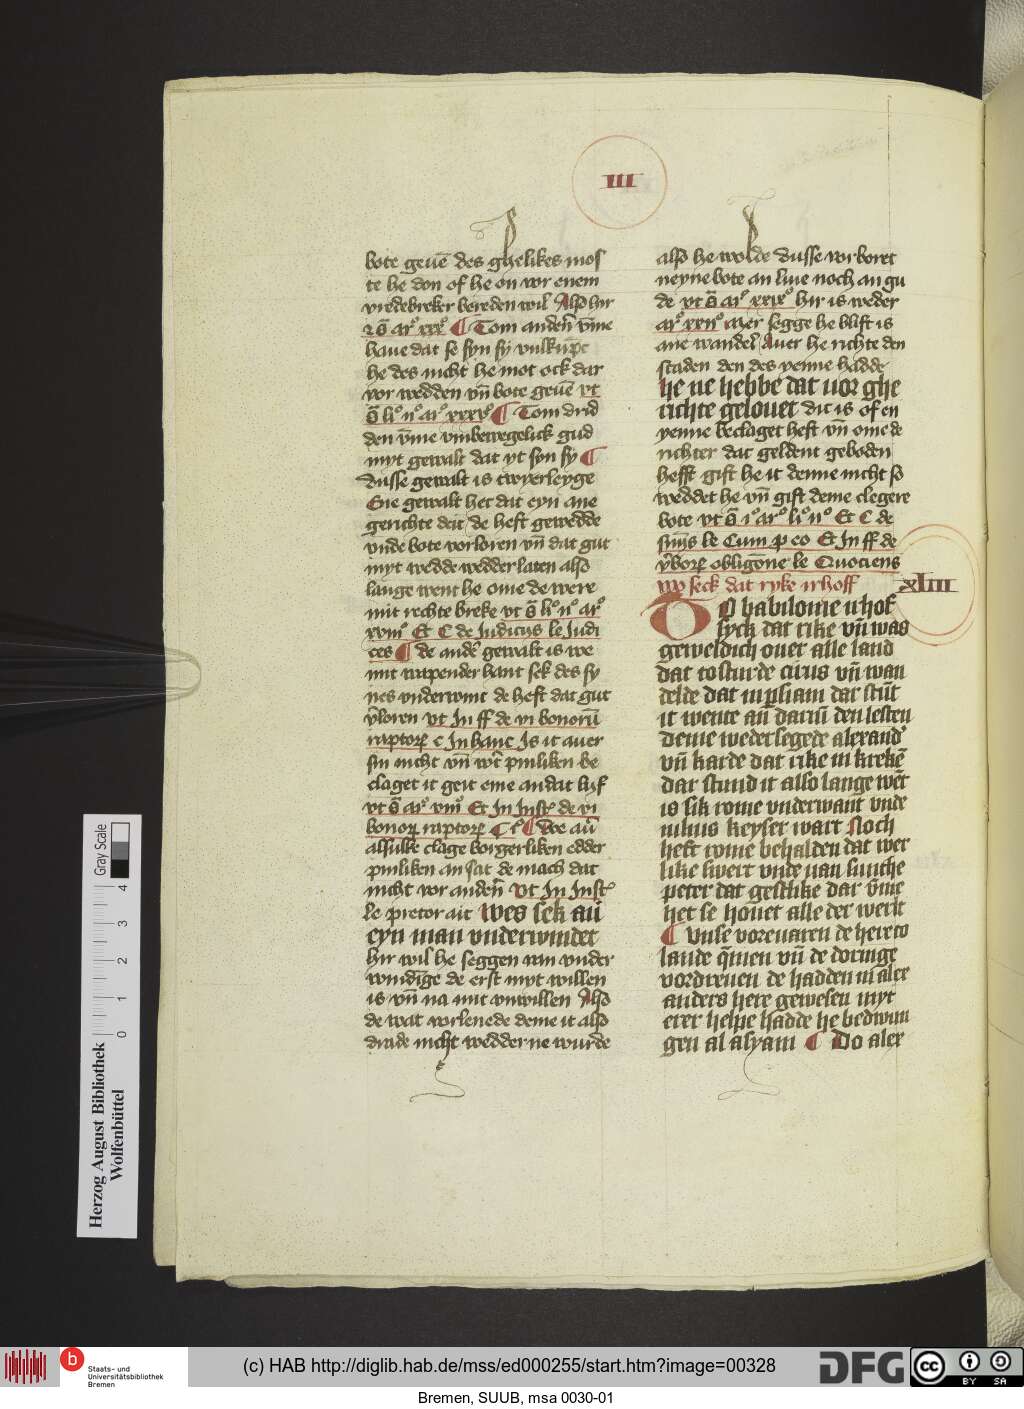 III
bote geuē des ghelikes mos
te he don of he on vor enem
vredebreker bereden wil Also hir
he des nicht he mot ock dar
vor wedden vn̄ bote geuē vt
den vīne vmbewegelick gud
myt gewalt dat yt syn sy
dusse gewalt is twyerleyge
Eine gewalt het dat eyn ane
gerichte deit de heft gewedde
vnde bote vorloren vn̄ dat gut
myt wedde wedder laten also
lange went he ome de were
mit rechte breke vt
Et C de Judicijs le Judi
ces de andeˀ gewalt is we
mit wapender hant sek des sy
nes vnderwint de heft dat gut
vˀloren vt In ff de vi bonorū
Is it auer
sin nicht vn̄
claget it geit eme an dat lyf
Et In Inst de vi
alsulke clage borgerliken edder
pinliken an sat de mach dat
nicht vor anderˀ vt In Inst
le pretor ait Wes sek aūˀ
eyn man vnderwindet
hir wil he seggen van vnder
windīge de erst myt willen
is vn̄ na mit vnwillen Also
de wat vorlenede deme it also
drade nicht wedder ne wurde
also he wolde dusse vorboret
neyne bote an liue noch an gu
de vt hir is weder
segge he blift is
ane wandel Auer he richte den
schaden den des yenne hadde
he ne hebbe dat uor ghe
richte gelouet dit is of en
yenne beclaget heft vn̄ ome de
richter dat geldent geboden
hefft gift he it denne nicht so
weddet he vn̄ gift deme clegere
bote vt Et C de
le Cum p eo Et In ff de
obligōne le Quociens
wo seck dat ryke irhoff
XLIIII
TO babilonie irhof
syck dat rike vn̄ was
geweldich ouer alle land
dat tosturde cirus vn̄ wan
delde dat in persiam dar stūt
it wente an̄ dariū den lesten
Deme wedersegede alexandˀ
vn̄ karde dat rike in krekē
dar stund it also lange wēt
is sik rome vnderwant vnde
iulius keyser wart Noch
heft rome behalden dat wer
like swert vnde uan sunthe
peter dat gestlike dar vīne
het se houet alle der werlt
Vnse voreuaren de hereto
lande qmen vn̄ de doringe
vordreuen de hadden in alex
anders here gewesen myt
erer helpe hadde he bedwun
gen al asyam Do alex
Herzog August Bibliothek
Wolfenbüttel
Gray Scale
0 1 2 3 4
b
Staats- und
Universitätsbibliothek
Bremen
(c) HAB http://diglib.hab.de/mss/ed000255/start.htm?image=00328
DFG
cc
BY SA
Bremen, SUUB, msa 0030-01